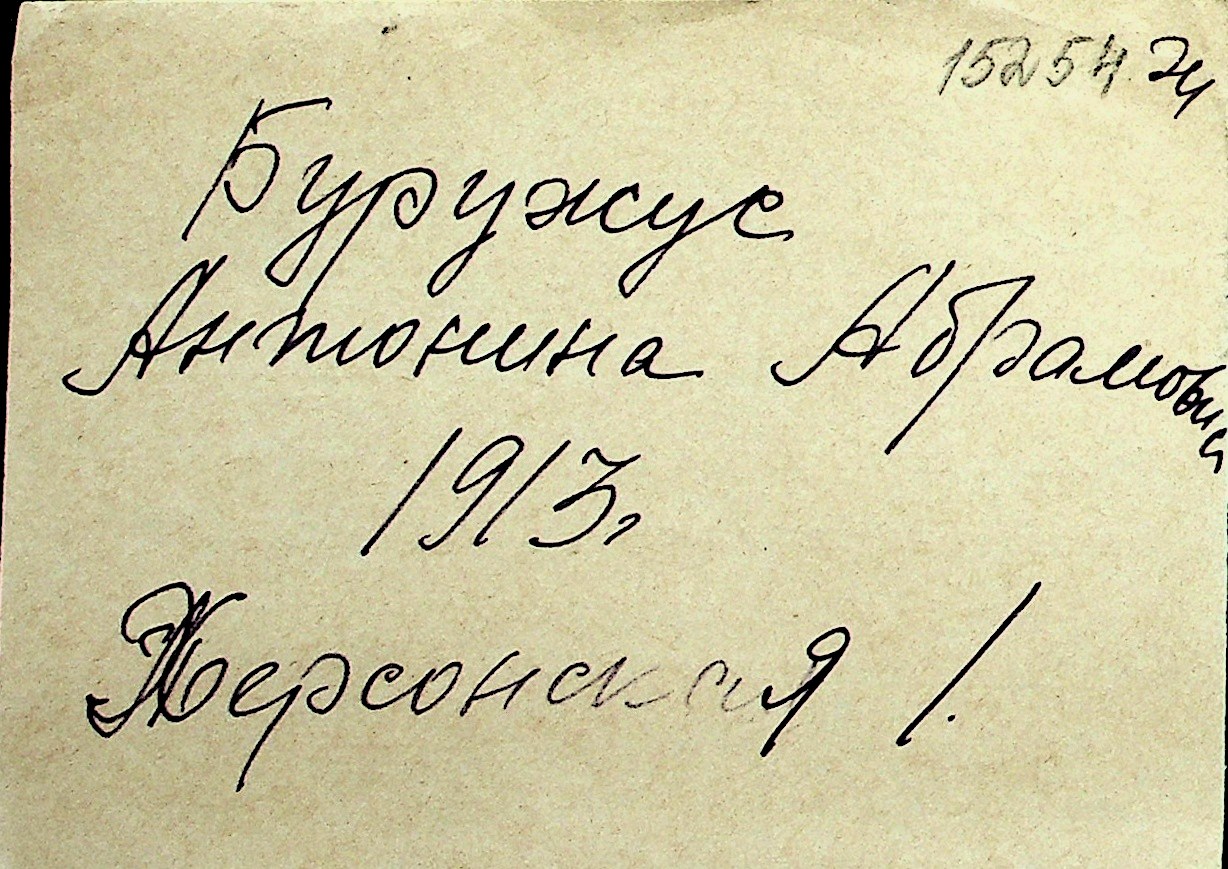 15254 Ж
Буружус
Антонина Абрамовна
1913г
Херсонская 1.